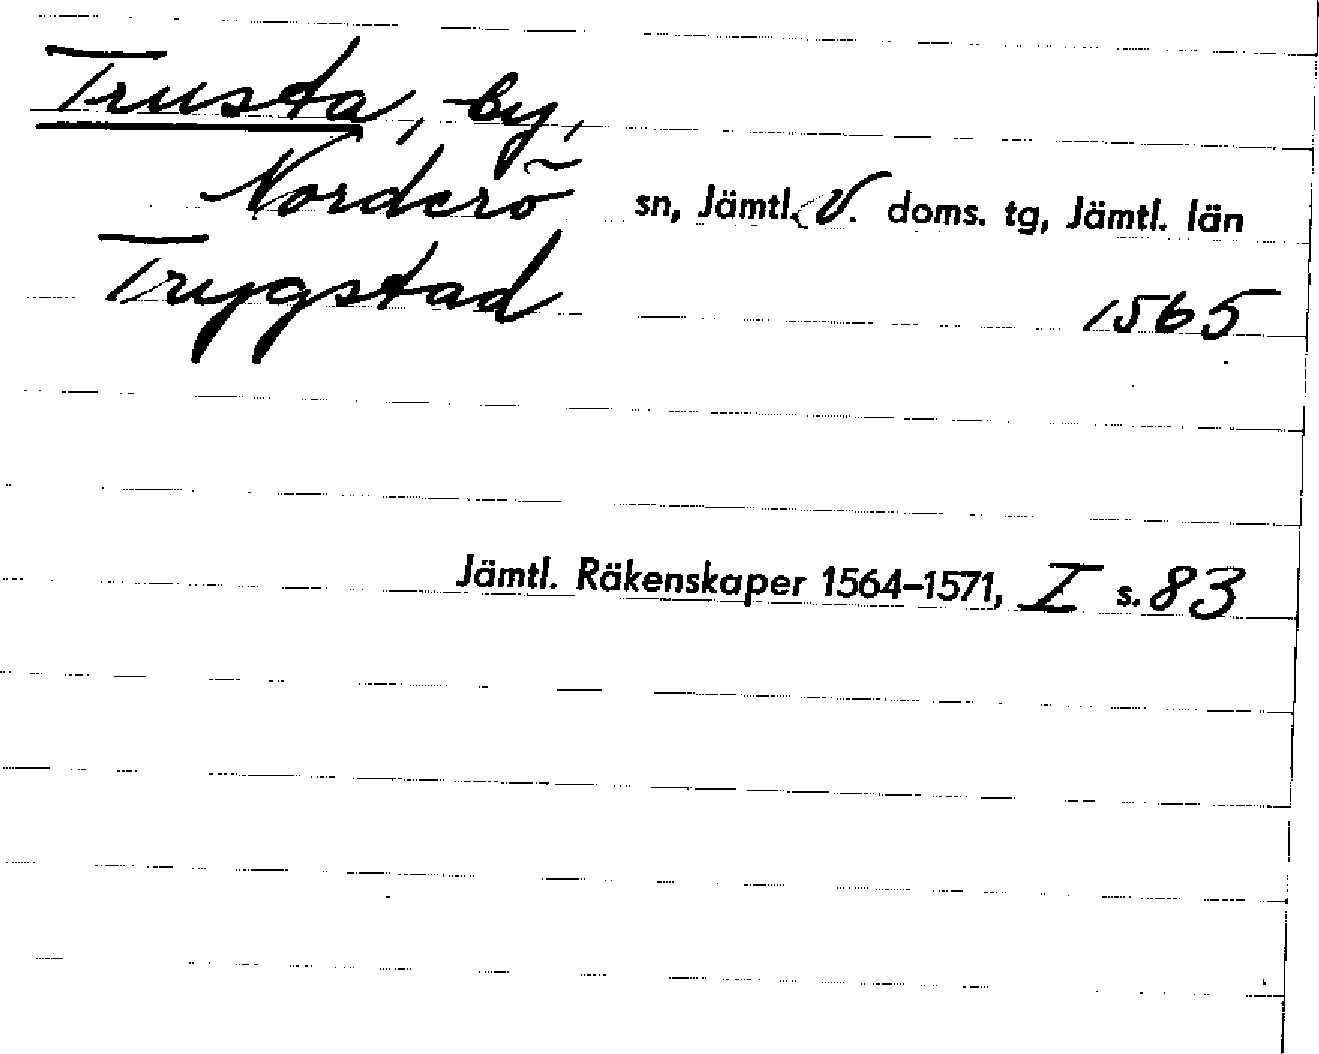 Trusta, by,
Norderö sn, Jämtl. V. doms. tg, Jämtl. län
Trygstad 1565
Jämtl. Räkenskaper 1564–1571, I s. 83